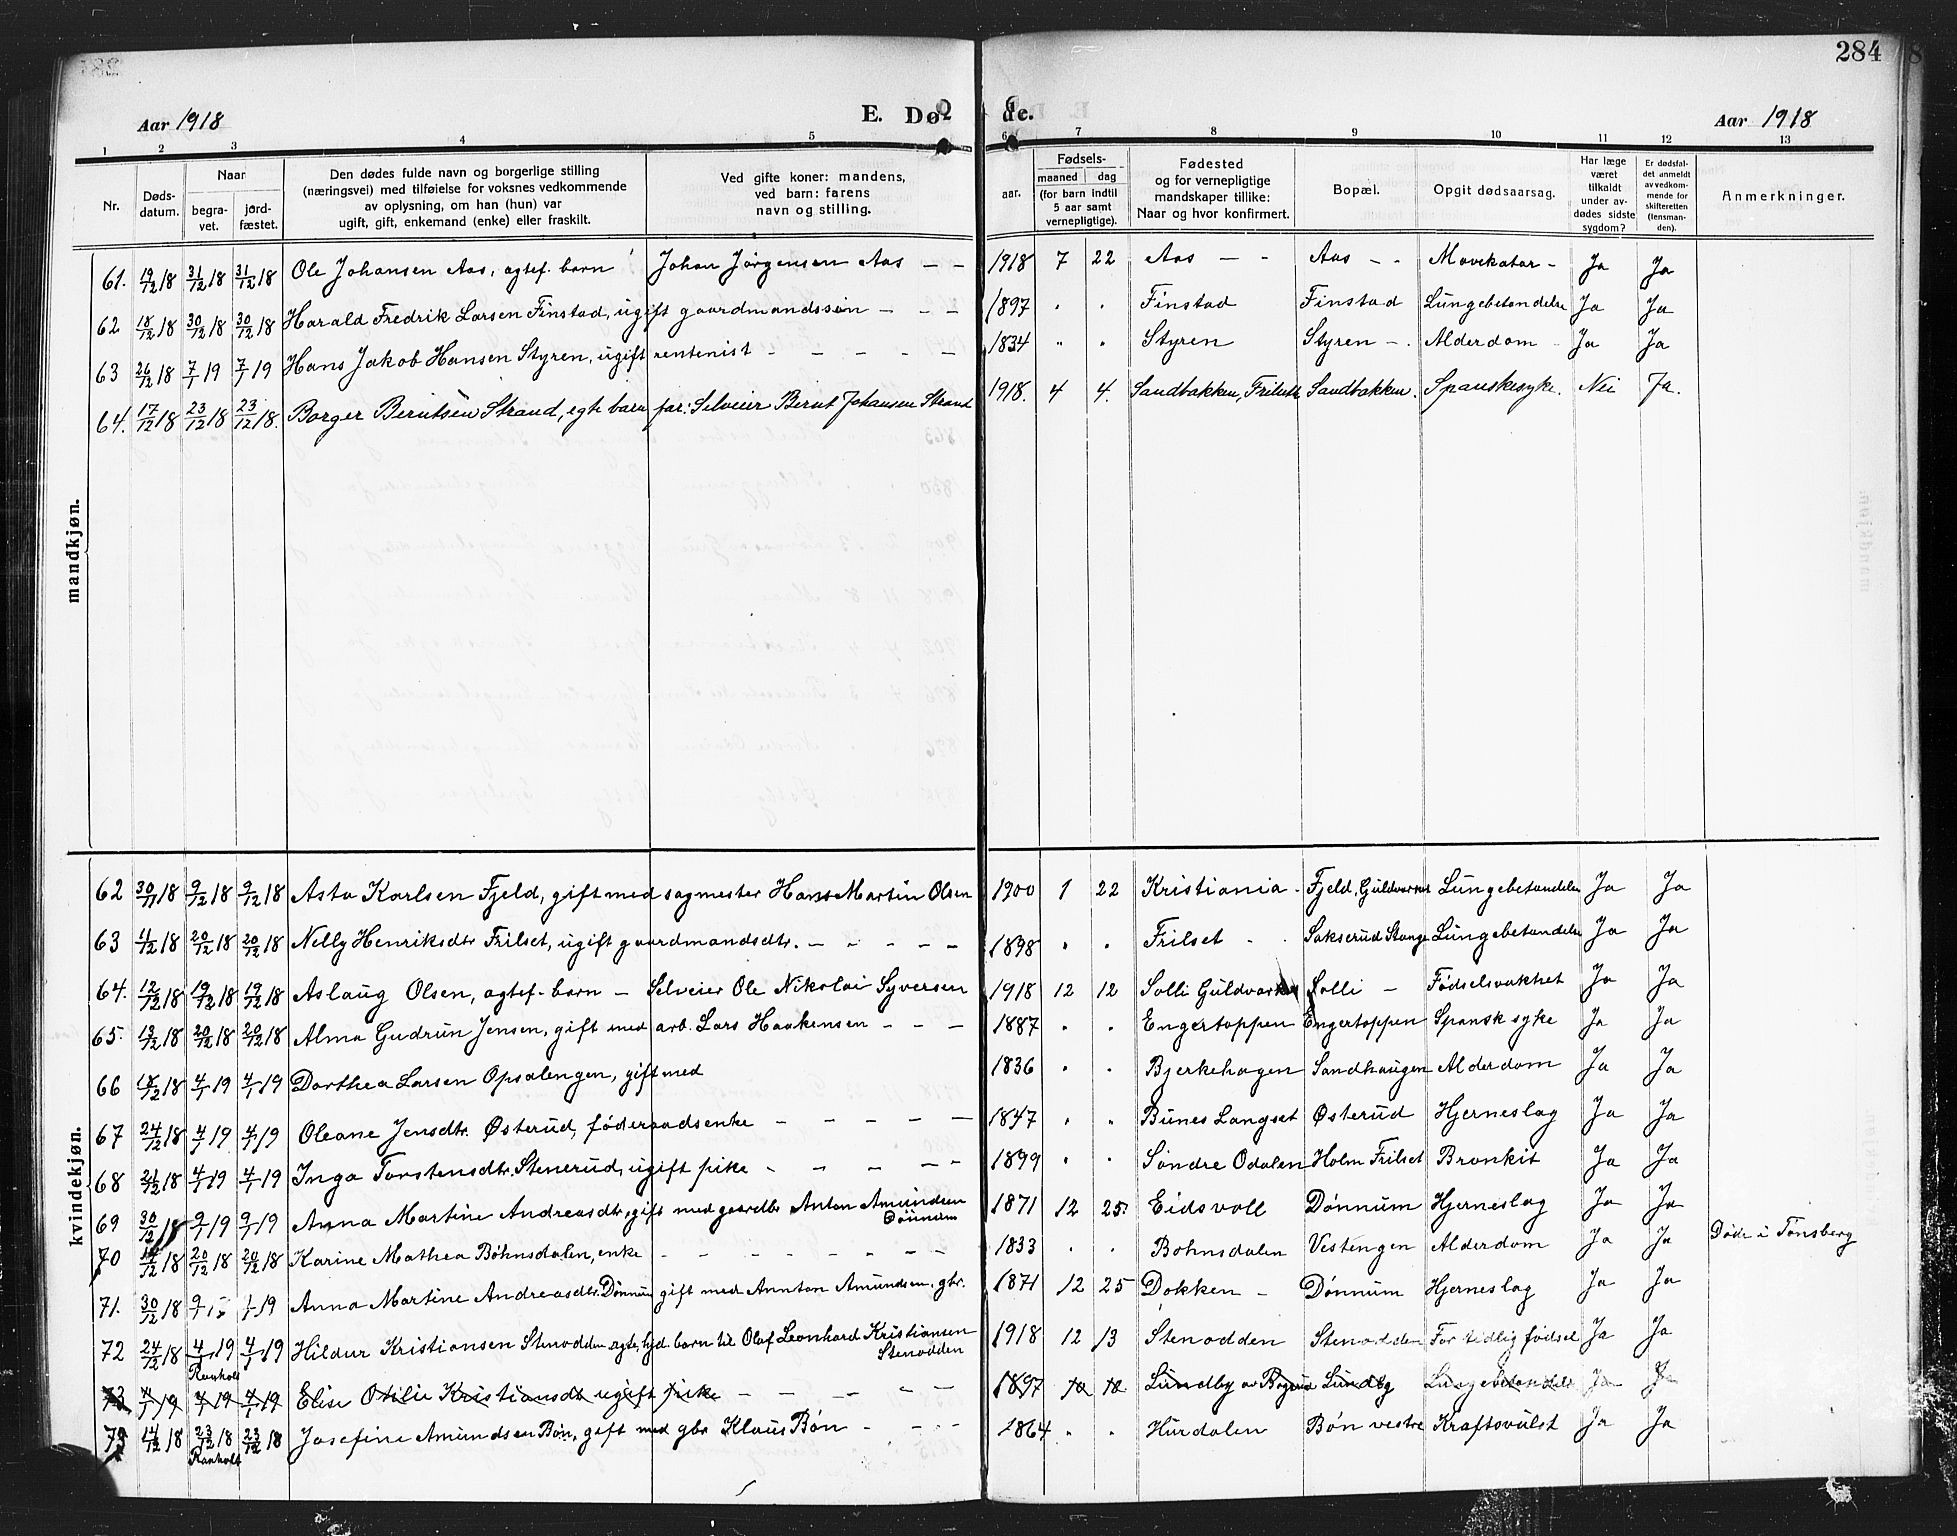 284
Aar 1918 E. Dø de. Aar 1918
1 2 3 4 5 6 7 8 9 10 11 12 13
Nr. Døds-datum. Naar begra-vet. jord-fæstet. Den dødes fulde navn og borgerlige stilling (næringsvei) med tilføielse for voksnes vedkommende av oplysning, om han (hun) var ugift, gift, enkemand (enke) eller fraskilt. Ved gifte koner: mandens, ved barn: farens navn og stilling. Fødsels- aar. maaned dag (for barn indtil 5 aar samt vernepligtige). Fødested og for vernepligtige mandskaper tillike: Naar og hvor konfirmert. Bopæl. Opgit dødsaarsag. Har læge været tilkaldt under av-dødes sidste sygdom? Er dødsfal-det anmeldt av vedkom-mende for skifteretten (lensman-den). Anmerkninger.
mandkjøn.
61. 19/12 18 31/12 18 31/12 18 Ole Johansen Aas, egtef. barn Johan Jørgensen Aas — — 1918 7 22 Aas — - Aas - - Mavekatar - Ja Ja
62 18/12 18 30/12 18 30/12 18 Harald Fredrik Larsen Finstad, ugift gaardmandssøn — — — 1897 " " Finstad Finstad Lungebetændelse Ja Ja
63 26/12 18 7/1 19 7/1 19 Hans Jakob Hansen Styren, ugift rentenist — — — — — 1834 " " Styren Styren - . Alderdom Ja Ja
64. 17/12 18 23/12 18 23/12 18. Borger Berntsen Strand, egte barn far: Selveier Bernt Johansen Strand 1918. 4 4. Sandbakken, Frilset Sandbakken. Spanskesyke. Nei Ja.
kvindekjøn.
62 30/11 18 9/12 18 9/12 18 Asta Karlsen Fjeld, gift med sagmester Hans Martin Olsen 1900 1 22 Kristiania - Fjeld, Guldverket Lungebetændelse Ja Ja
63 11/12 18 20/12 18 20/12 18 Nelly Henriksdtr. Frilset, ugift gaardmandsdtr. — - — — — 1898 " " Frilset - Sakserud Stange Lungebetændelse Ja Ja
64. 12/12 18 19/12 18 19/12 18 Aslaug Olsen, egtef. barn — Selveier Ole Nikolai Syversen 1918 12 12 Solli Guldverket Solli - Fødselsvakhet Ja Ja
65. 13/12 18 20/12 18 20/12 18 Alma Gudrun Jensen, gift med arb. Lars Haakensen - - — 1887 " " Engertoppen Engertoppen Spansk syke Ja Ja
66 18 4/1 19 4/1 19 Dorthea Larsen Opsalengen, gift med 1836 " " Bjerkehagen Sandhaugen Alderdom Ja Ja
67 24/12 18 4/1 19 4/1 19 Oleane Jensdtr. Østerud, føderaadsenke — — — — — 1847 " " Bunes Langset Østerud Hjerneslag Ja Ja
68 21/12 18 4/1 19 4/1 19 Inga Torstensdtr. Stenerud, ugift pike — — — — — 1899 " " Søndre Odalen Holm Frilset Bronkit Ja Ja
69 30/12 18 9/1 19 9/1 19 Anna Martine Andreasdtr, gift med gaardbr. Anton Amundsen Dønnum 1871 12 25. Eidsvoll Dønnum Hjerneslag Ja Ja
70 12 18 20/12 18 20/12 18 Karine Mathea Bøhnsdalen, enke — — — — — — — 1833 " " Bohnsdalen Vestengen Alderdom Ja Ja Døde i Tønsberg
71. 30/12 18 9/1 1 19 Anna Martine Andreasdtr. Dønnum gift med Annton Amundsen. gbr. 1871 12 25 Dokken - Dønnum Hjerneslag Ja Ja
72 24/12 18 4/1 19 Ranholt 4/1 19 Hildur Kristiansen Stenodden egte, barn til Olaf Leonhard Kristiansen Stenodden 1918 12 13 Stenodden Stenodden For tidlig fødsel Ja Ja
73 4/1 19 4/1 19 4/1 19 Elise Otilie Kristiansdtr ugift pike — — — — — 1897 10 10 Lundby av Lundby Lungebetændelse Ja Ja
73 11/12 18 23/12 18 Ranholt 23/12 18 Josefine Amundsen Bøn, gift med gbr Klaus Bøn — - - — 1864 " " Hurdalen Bøn vestre Kraftsvulst Ja Ja